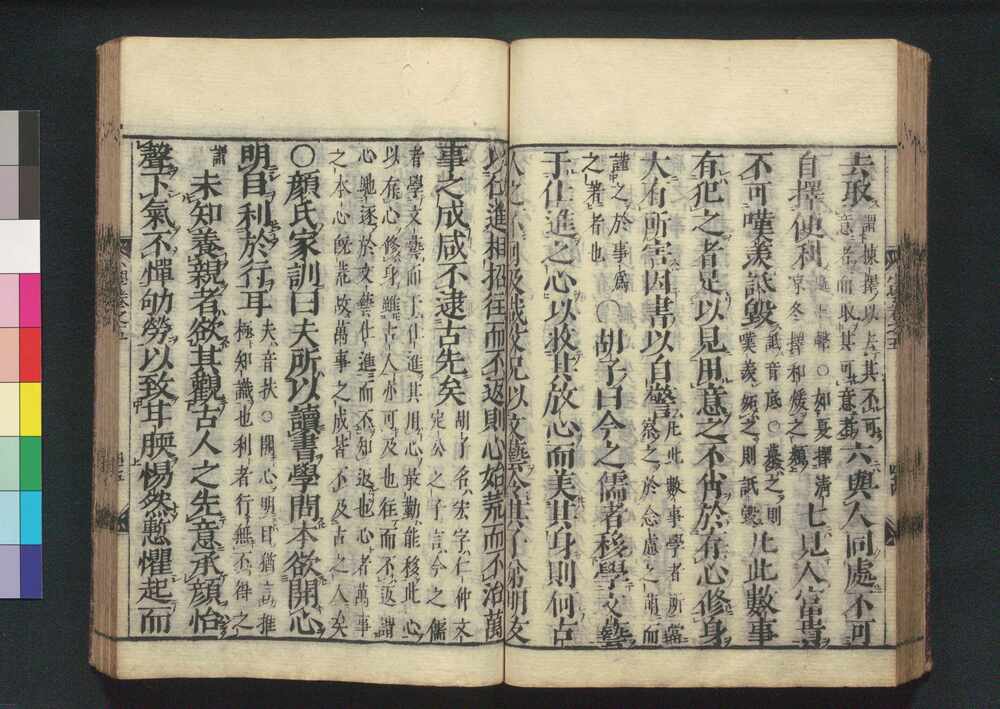 去取謂揀擇以去其不可意者而取其可意者六與人同處不可
自擇便利擇上聲○如夏擇清涼冬擇和煖之類七見人富貴
不可嘆羨詆毀詆音底○慕之則嘆羨妬之則詆毀凡此數事
有犯之者足以見用意之不肖於存心修身
大有所害因書以自警凡此數事學者所當察之於念慮之萌而
謹之於事爲之著者也○胡子曰今之儒者移學文藝
于仕進之心以收其放心而美其身則何古
人之不可及哉父兄以文藝令其子弟朋友
以仕進相招往而不返則心始荒而不治萬
事之成咸不逮古先矣胡子名宏字仁仲文定公之子言今之儒
者學文藝而干仕進其用心最勤能移此心以存心修身雖古人亦可及也往而不返謂
心馳逐於文藝仕進而不知返也心者萬事之本心既荒故萬事之成皆不及古之人矣
○顔氏家訓曰夫所以讀書學問本欲開心
明目利於行耳夫音扶○開心明目猶言推極知識也利者行無不得之
謂未知養親者欲其觀古人之先意承顔怡
聲下氣不憚劬勞以致甘腝惕然慙懼起而